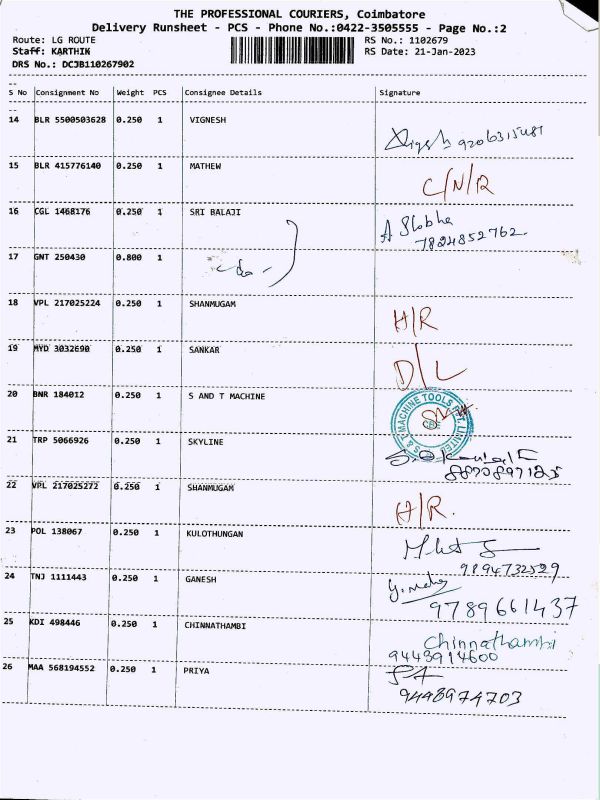 THE PROFESSIONAL COURIERS, Coimbatore
Delivery Runsheet - PCS - Phone No.:0422-3505555 - Page No.:2
Route: LG ROUTE
RS No.: 1102679
Staff: KARTHIK
RS Date: 21-Jan-2023
DRS No.: DCJB110267902
S No Consignment No Weight PCS Consignee Details Signature
14 BLR 5500503628 0.250 1 VIGNESH
15 BLR 415776140 0.250 1 MATHEW C/N/R
16 CGL 1468176 0.250 1 SRI BALAJI A Shobha
7824852762.
17 GNT 250430 0.800 1 -do-
18 VPL 217025224 0.250 1 SHANMUGAM H/R
19 MYD 3032690 0.250 1 SANKAR D/L
20 BNR 184012 0.250 1 S AND T MACHINE
S & T MACHINE TOOLS PVT. LIMITED
CBE
21 TRP 5066926 0.250 1 SKYLINE
22 VPL 217025272 0.250 1 SHANMUGAM H/R.
23 POL 138067 0.250 1 KULOTHUNGAN
9894732529
24 TNJ 1111443 0.250 1 GANESH
9789661437
25 KDI 498446 0.250 1 CHINNATHAMBI Chinnathambi
9443914600
26 MAA 568194552 0.250 1 PRIYA
9448974703